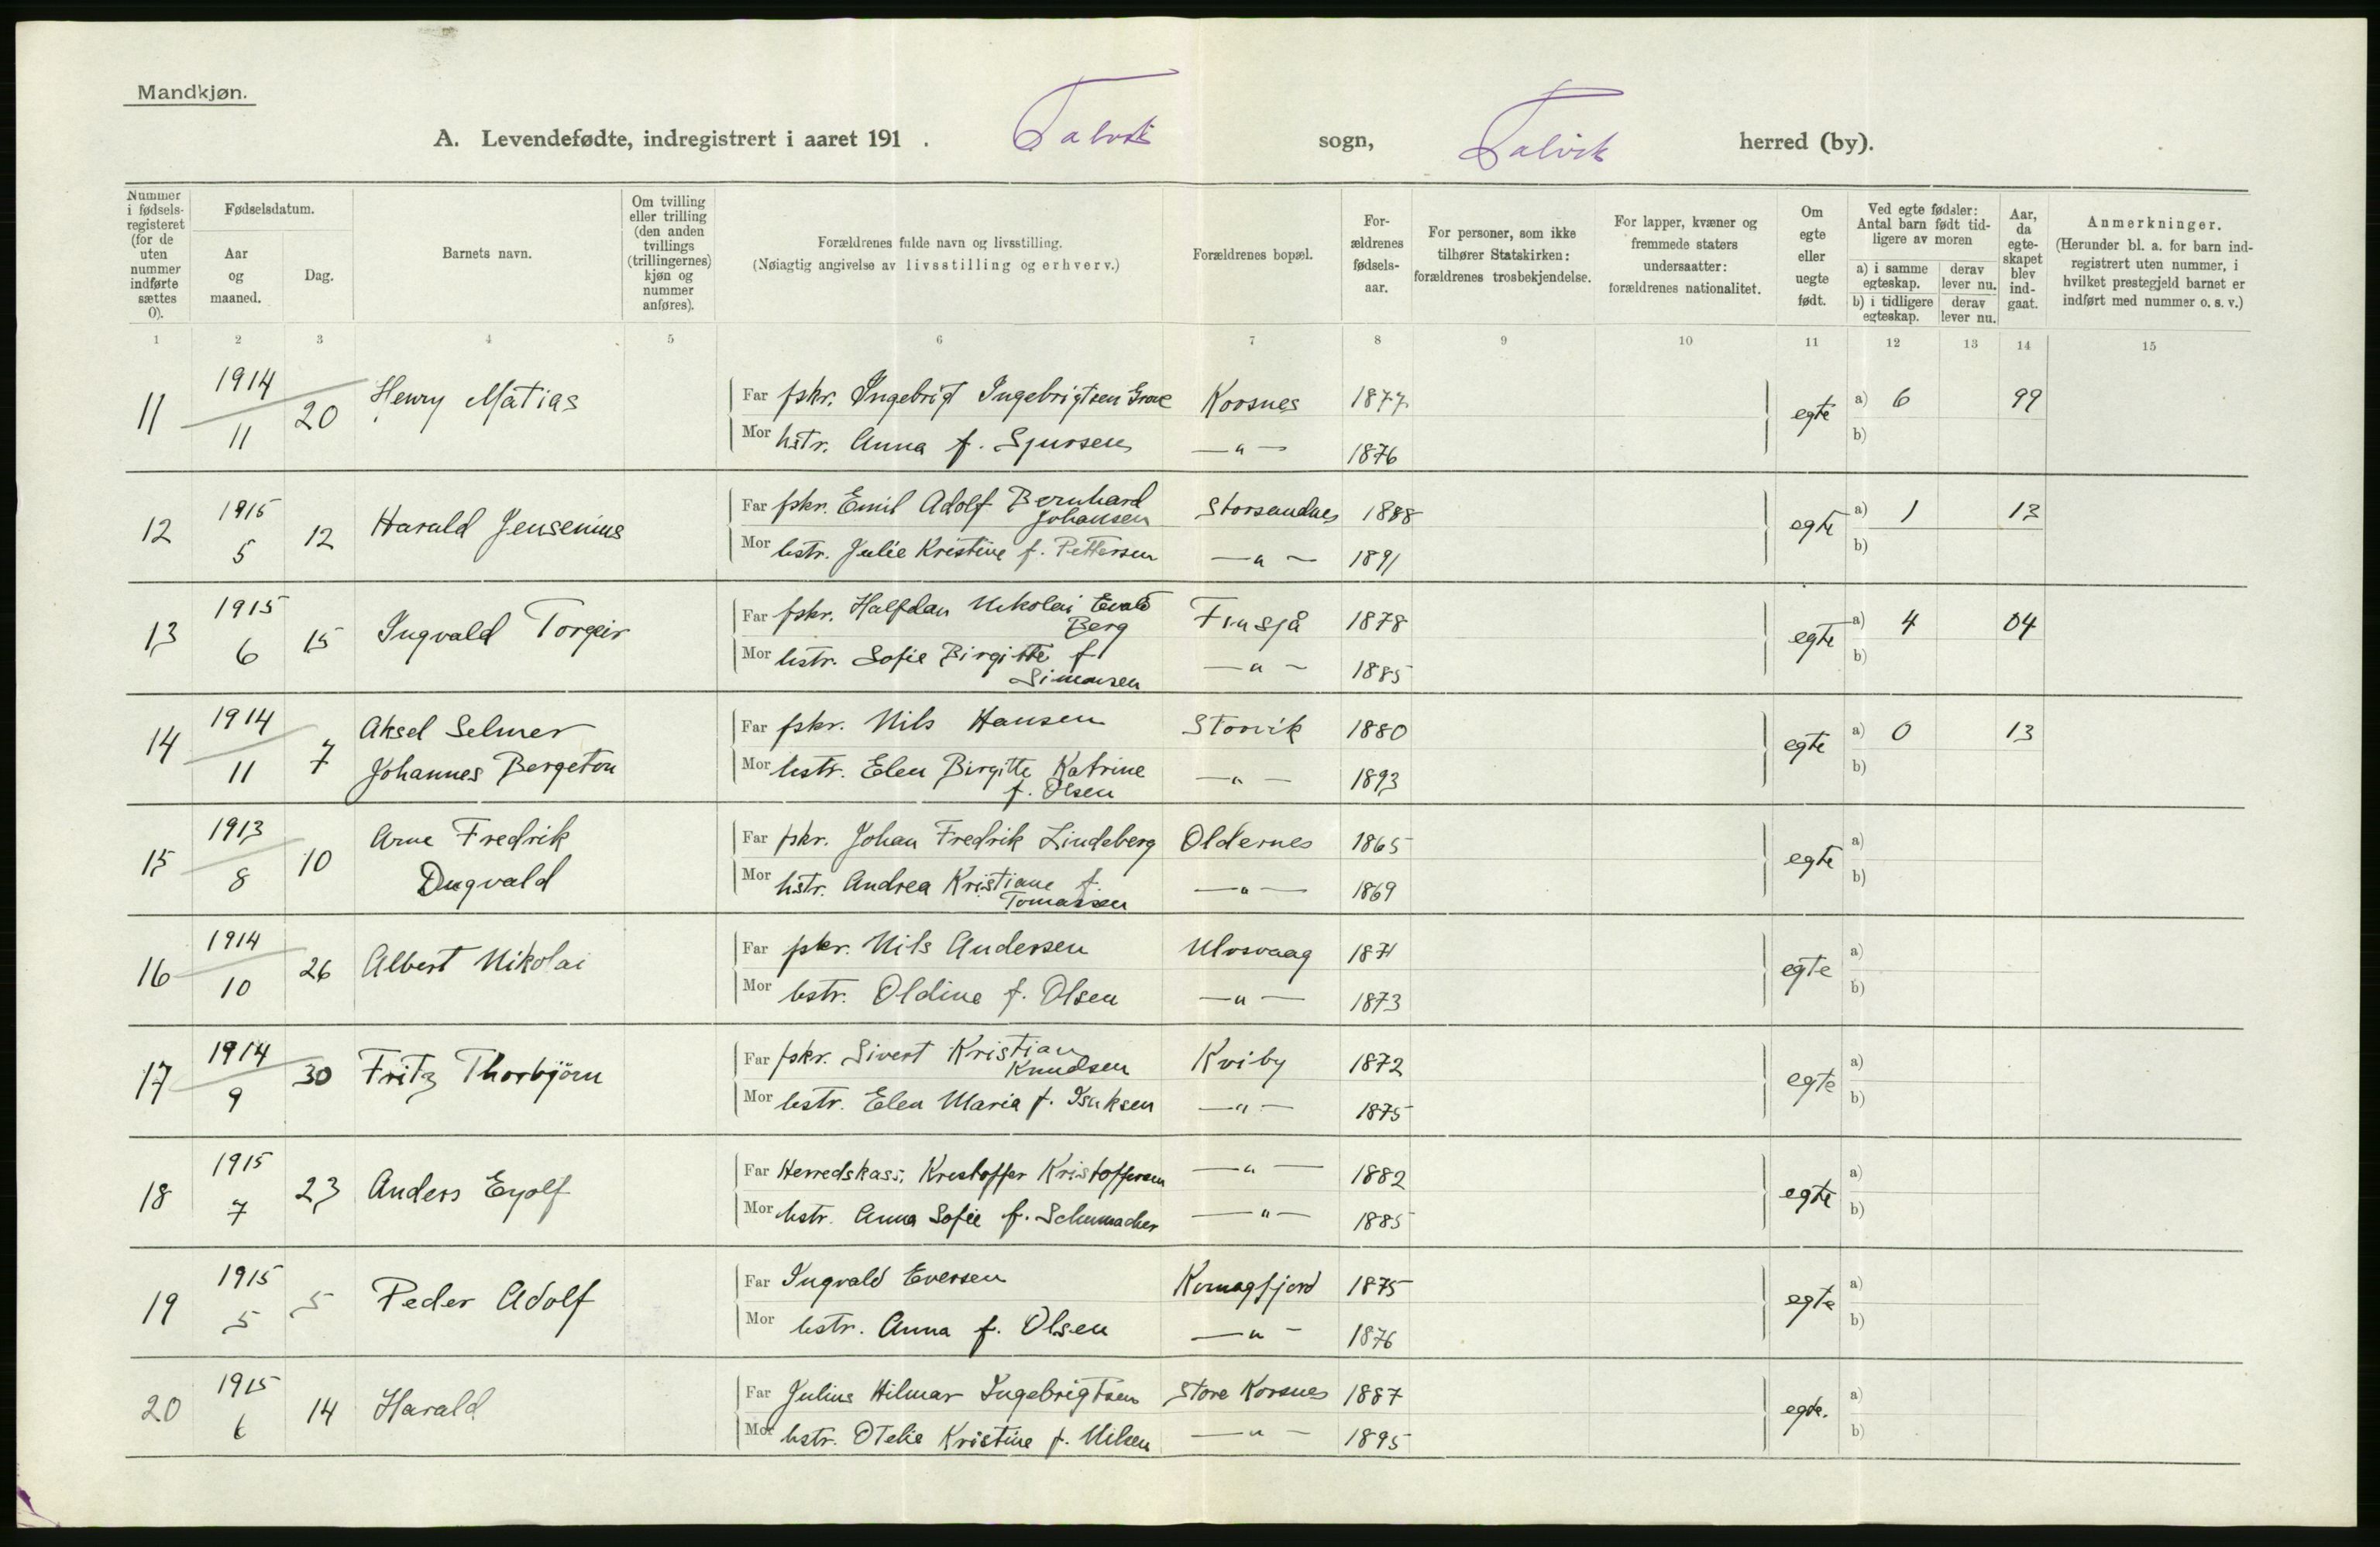 Mandkjøn.
A. Levendefødte, indregistrert i aaret 191 . Talvik sogn, Talvik herred (by).
Nummer i fødsels-registeret (for de uten nummer indførte sættes 0).
Fødselsdatum.
Aar og maaned.
Dag.
Barnets navn.
Om tvilling eller trilling (den anden tvillings (trillingernes) kjøn og nummer anføres).
Forældrenes fulde navn og livsstilling.
(Nøiagtig angivelse av livsstilling og erhverv.)
Forældrenes bopæl.
For-ældrenes fødsels-aar.
For personer, som ikke tilhører Statskirken: forældrenes trosbekjendelse.
For lapper, kvæner og fremmede staters undersaatter: forældrenes nationalitet.
Om egte eller uegte født.
Ved egte fødsler: Antal barn født tid-ligere av moren
a) i samme egteskap. derav lever nu.
b) i tidligere egteskap. derav lever nu.
Aar, da egte-skapet blev ind-gaat.
Anmerkninger.
(Herunder bl. a. for barn ind-registrert uten nummer, i hvilket prestegjeld barnet er indført med nummer o. s. v.)
1 2 3 4 5 6 7 8 9 10 11 12 13 14 15
11 1914 11 20 Henry Matias
Far fskr. Ingebrigt Ingebrigtsen Korsnes 1877 egte a) 6 99
Mor hstr. Anna f. Sjursen —"— 1876 b)
12 1915 5 12 Harald Jensenius
Far fskr. Emil Adolf Bernhard Johansen Storsandnes 1888 egte a) 1 13
Mor hstr. Julie Kristine f. Pettersen —"— 1891 b)
13 1915 6 15 Ingvald Torgeir
Far fskr. Halfdan Nikolai Evald Berg 1878 egte a) 4 04
Mor hstr. Sofie Birgitte f Simonsen —"— 1885 b)
14 1914 11 7 Aksel Selmer
Johannes Bergeton
Far fskr. Nils Hansen Storvik 1880 egte a) 0 13
Mor hstr. Elen Birgitte Katrine f. Olsen —"— 1893 b)
15 1913 8 10 Arne Fredrik
Dagvald
Far fskr. Johan Fredrik Lindeberg Oldernes 1865 egte a)
Mor hstr. Andrea Kristiane f. Tomassen —"— 1869 b)
16 1914 10 26 Albert Nikolai
Far fskr. Nils Andersen Ulvsvaag 1871 egte a)
Mor hstr. Oldine f. Olsen —"— 1873 b)
17 1914 9 30 Fritz Thorbjörn
Far fskr. Sivert Kristian Knudsen Kviby 1872 egte a)
Mor hstr. Elen Maria f. Isaksen —"— 1875 b)
18 1915 7 23 Anders Eyolf
Far Herredskass. Kristoffer Kristoffersen —"— 1882 egte a)
Mor hstr. Anna Sofie f. Schumacher —"— 1885 b)
19 1915 5 5 Peder Adolf
Far Ingvald Eversen Komagfjord 1875 egte a)
Mor hstr. Anna f. Olsen —"— 1876 b)
20 1915 6 14 Harald
Far Julius Hilmar Ingebrigtsen Store Korsnes 1887 egte. a)
Mor hstr. Otelie Kristine f. Nilsen —"— 1895 b)